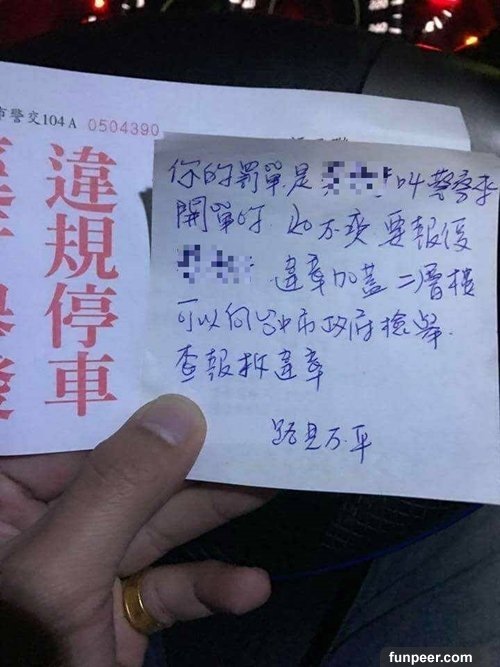 市警交104A 0504390
違規停車
你的罰單是 叫警察來
開單的 如不爽 要報復
違章加蓋二層樓
可以向台中市政府檢舉.
查報拆違章
路見不平
funpeer.com